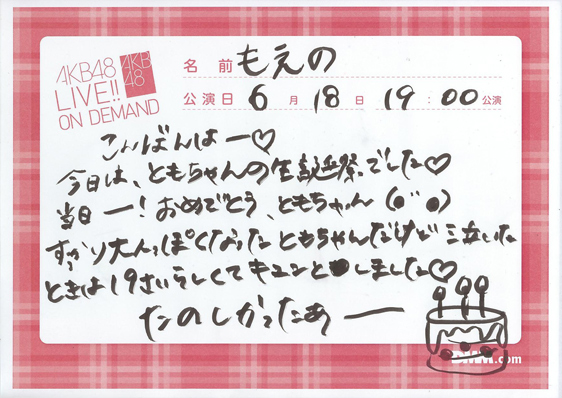 AKB48
LIVE!!
ON DEMAND
AKB
48
名 前 もえの
公演日 6 月 18 日 19 : 00 公演
こんばんはー♡
今日は、ともちゃんの生誕祭でした♡
当日ー！おめでとう、ともちゃん
すっかり大人っぽくなったともちゃんだけど
ときは19さいらしくてキュンとしました♡
たのしかったあー
DMM.com